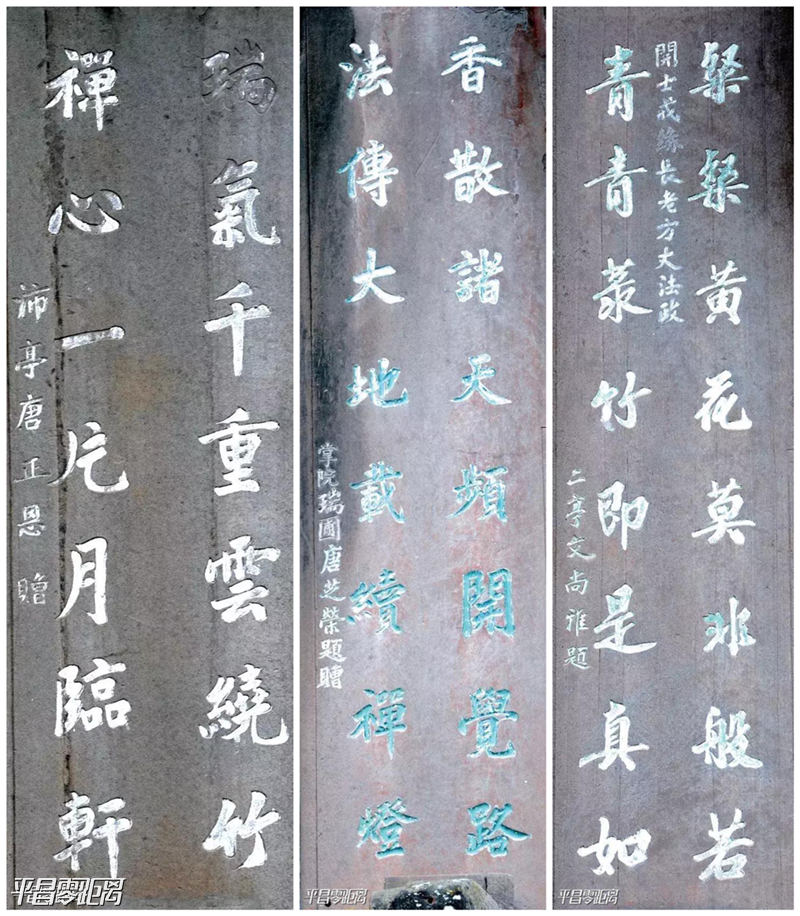 瑞氣千重雲繞竹
禪心一片月臨軒
沛亭唐正恩 贈
平昌零距离
香散諸天頻開覺路
法傳大地載續禪燈
掌院瑞圖唐芝榮題贈
平昌零距离
粲粲黃花莫非般若
開士戒緣長老方丈法政
青青菉竹即是真如
二亭文尚雅題
平昌零距离